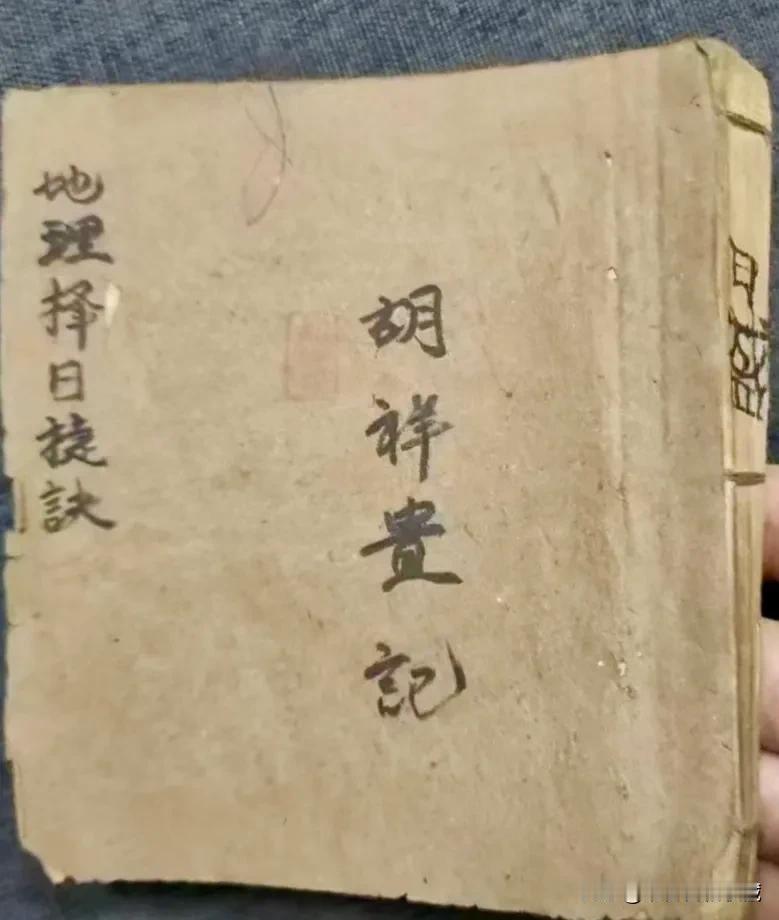 地理择日捷訣
胡祥貴記